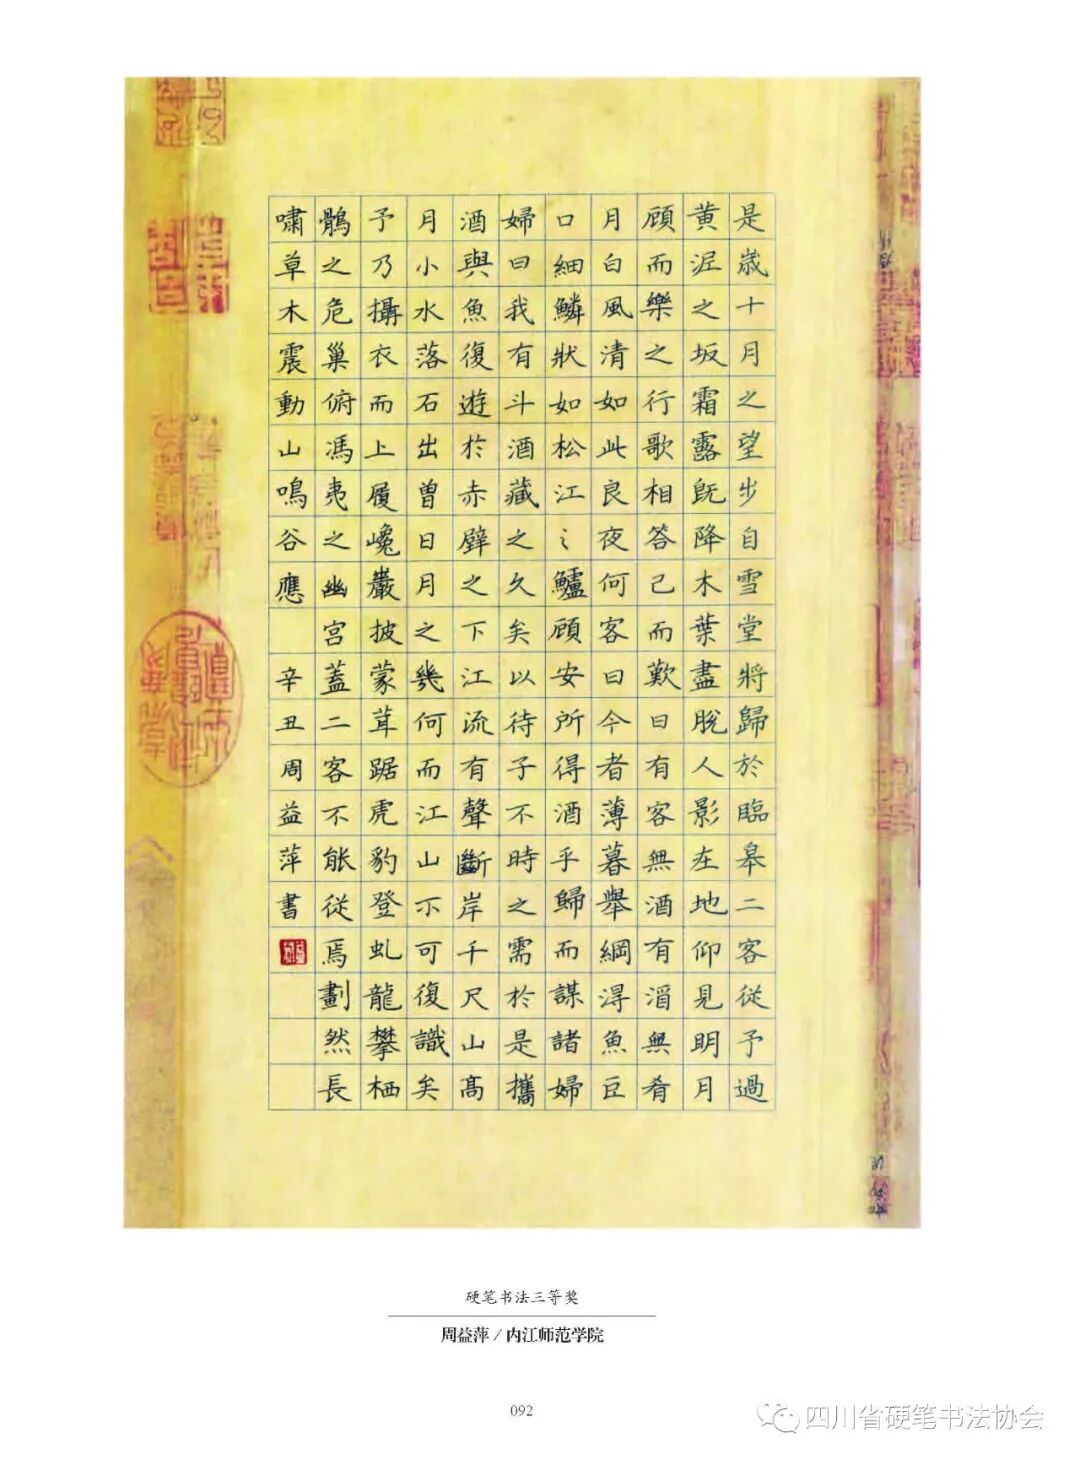 是歲十月之望步自雪堂將歸於臨皋二客從予過
黃泥之坂霜露既降木葉盡脫人影在地仰見明月
顧而樂之行歌相答已而歎曰有客無酒有酒無肴
月白風清如此良夜何客曰今者薄暮舉綱得魚巨
口細鱗狀如松江之鱸顧安所得酒乎歸而謀諸婦
婦曰我有斗酒藏之久矣以待子不時之需於是攜
酒與魚復遊於赤壁之下江流有聲斷岸千尺山高
月小水落石出曾日月之幾何而江山不可復識矣
予乃攝衣而上履巉巖披蒙茸踞虎豹登虬龍攀栖
鶻之危巢俯馮夷之幽宮蓋二客不能從焉劃然長
嘯草木震動山鳴谷應 辛丑周益萍書
硬笔书法三等奖
周益萍/内江师范学院
092
四川省硬笔书法协会